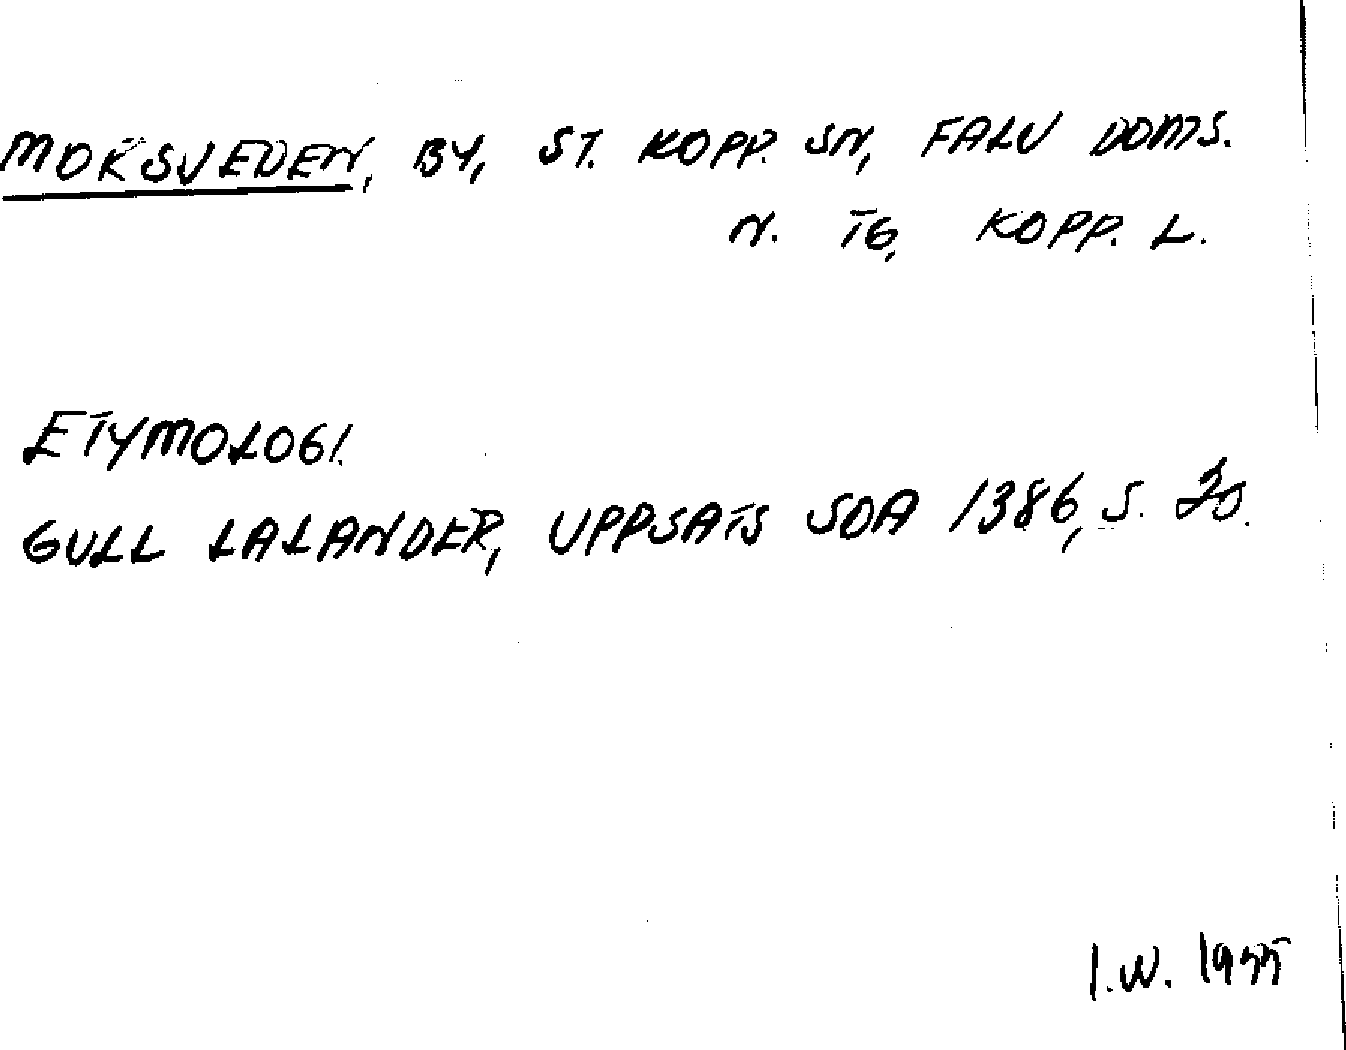 MOKSVEDEN, BY, ST. KOPP. SN, FALU DOMS.
N. TG, KOPP. L.
ETYMOLOGI.
GULL LALANDER, UPPSATS SOA 1386, S. 20.
I.W. 1955